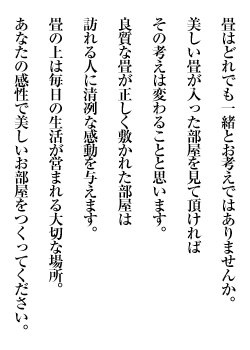 畳はどれでも一緒とお考えではありませんか。
美しい畳が入った部屋を見て頂ければ
その考えは変わることと思います。
良質な畳が正しく敷かれた部屋は
訪れる人に清冽な感動を与えます。
畳の上は毎日の生活が営まれる大切な場所。
あなたの感性で美しいお部屋をつくってください。